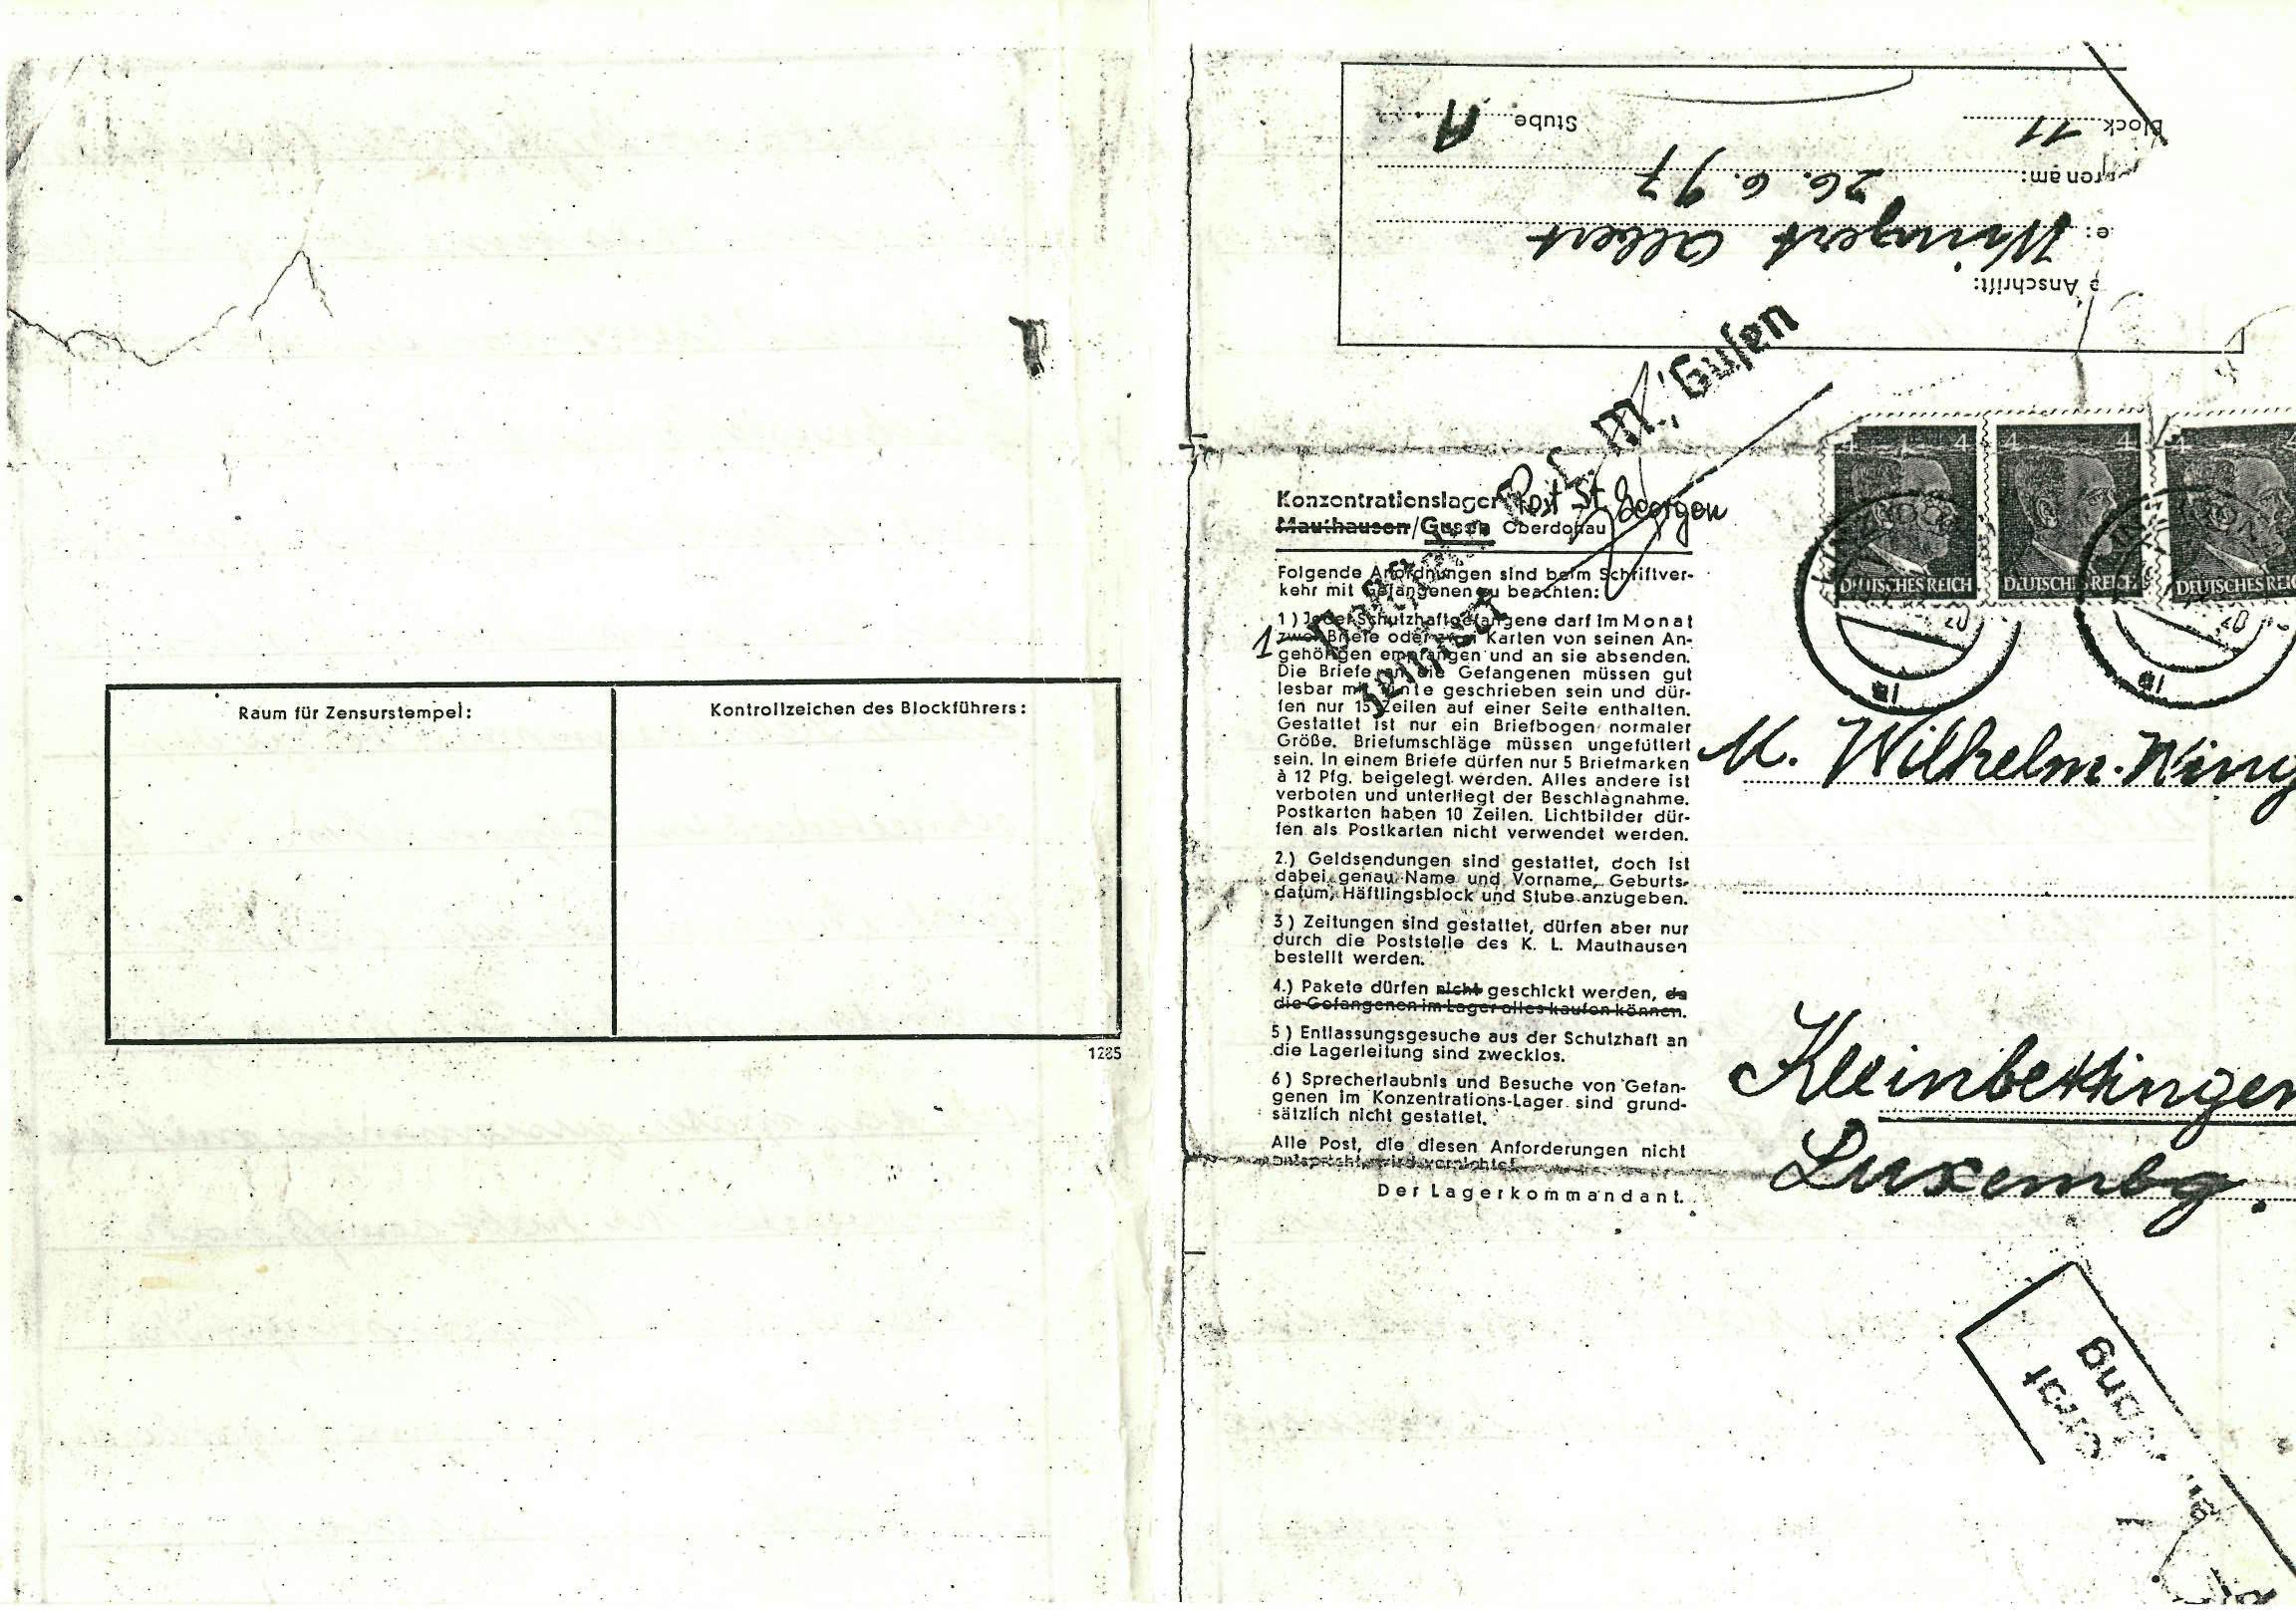 Raum für Zensurstempel:
Kontrollzeichen des Blockführers:
1285
Anschrift:
e: Wingert Albert
ren am: 26. 6. 97
Block 11 Stube A
K. L. M., Gusen
Konzentrationslager Post St. Georgen
Mauthausen/Gusen Oberdonau
Folgende Anordnungen sind beim Schriftver-
kehr mit Gefangenen zu beachten:
1) Jeder Schutzhaftgefangene darf im Monat
1 zwei Briefe oder zwei Karten von seinen An-
gehörigen empfangen und an sie absenden.
Die Briefe an die Gefangenen müssen gut
lesbar mit Tinte geschrieben sein und dür-
fen nur 15 Zeilen auf einer Seite enthalten.
Gestattet ist nur ein Briefbogen normaler
Größe. Briefumschläge müssen ungefüttert
sein. In einem Briefe dürfen nur 5 Briefmarken
à 12 Pfg. beigelegt werden. Alles andere ist
verboten und unterliegt der Beschlagnahme.
Postkarten haben 10 Zeilen. Lichtbilder dür-
fen als Postkarten nicht verwendet werden.
2.) Geldsendungen sind gestattet, doch ist
dabei genau Name und Vorname, Geburts-
datum, Häftlingsblock und Stube anzugeben.
3) Zeitungen sind gestattet, dürfen aber nur
durch die Poststelle des K. L. Mauthausen
bestellt werden.
4.) Pakete dürfen nicht geschickt werden, da
die Gefangenen im Lager alles kaufen können.
5) Entlassungsgesuche aus der Schutzhaft an
die Lagerleitung sind zwecklos.
6) Sprecherlaubnis und Besuche von Gefan-
genen im Konzentrations-Lager sind grund-
sätzlich nicht gestattet.
Alle Post, die diesen Anforderungen nicht
entspricht, wird vernichtet.
Der Lagerkommandant.
4 4 4 4 4 4
DEUTSCHES REICH DEUTSCHES REICH DEUTSCHES REIC
20 20
a a
M. Wilhelm. Wing
Kleinbettingen
Luxembg.